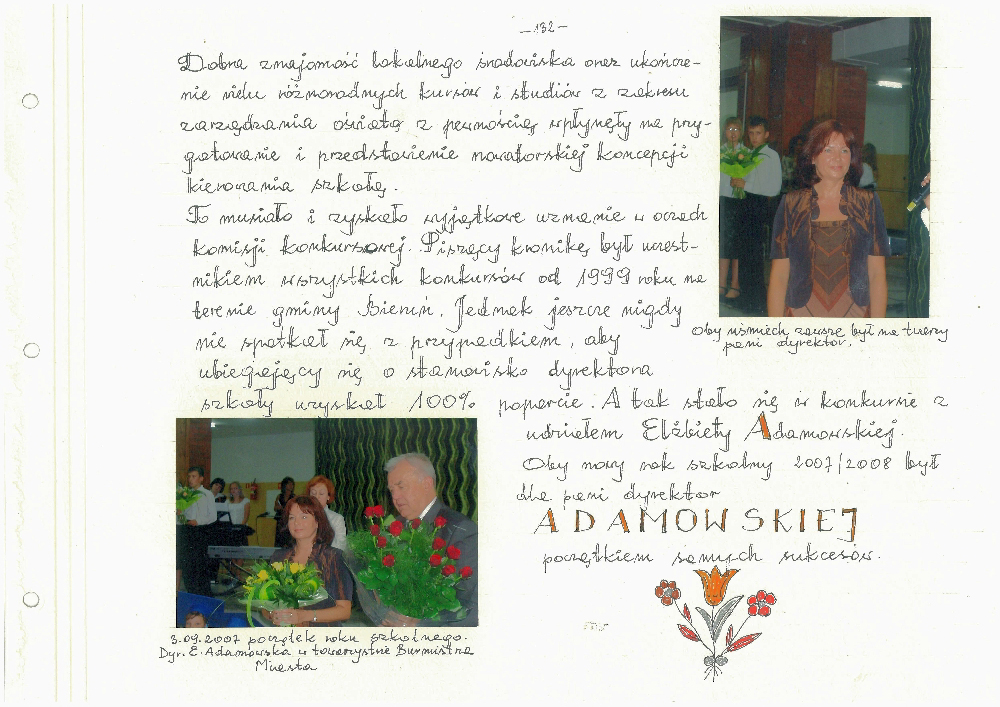 -132-
Dobra znajomość lokalnego środowiska oraz ukończe-
nie wielu różnorodnych kursów i studiów z zakresu
zarządzania oświatą z pewnością wpłynęły na przy-
gotowanie i przedstawienie nowatorskiej koncepcji
kierowania szkołą.
To musiało i zyskało wyjątkowe uznanie w oczach
komisji konkursowej. Piszący kronikę był uczest-
nikiem wszystkich konkursów od 1999 roku na
terenie gminy Bieruń. Jednak jeszcze nigdy
nie spotkał się z przypadkiem, aby
ubiegający się o stanowisko dyrektora
szkoły uzyskał 100% poparcie. A tak stało się w konkursie z
udziałem Elżbiety Adamowskiej.
Oby nowy rok szkolny 2007/2008 był
dla pani dyrektor
ADAMOWSKIEJ
początkiem samych sukcesów.
Oby uśmiech zawsze był na twarzy
pani dyrektor.
3.09.2007 początek roku szkolnego.
Dyr. E. Adamowska w towarzystwie Burmistrza
Miasta